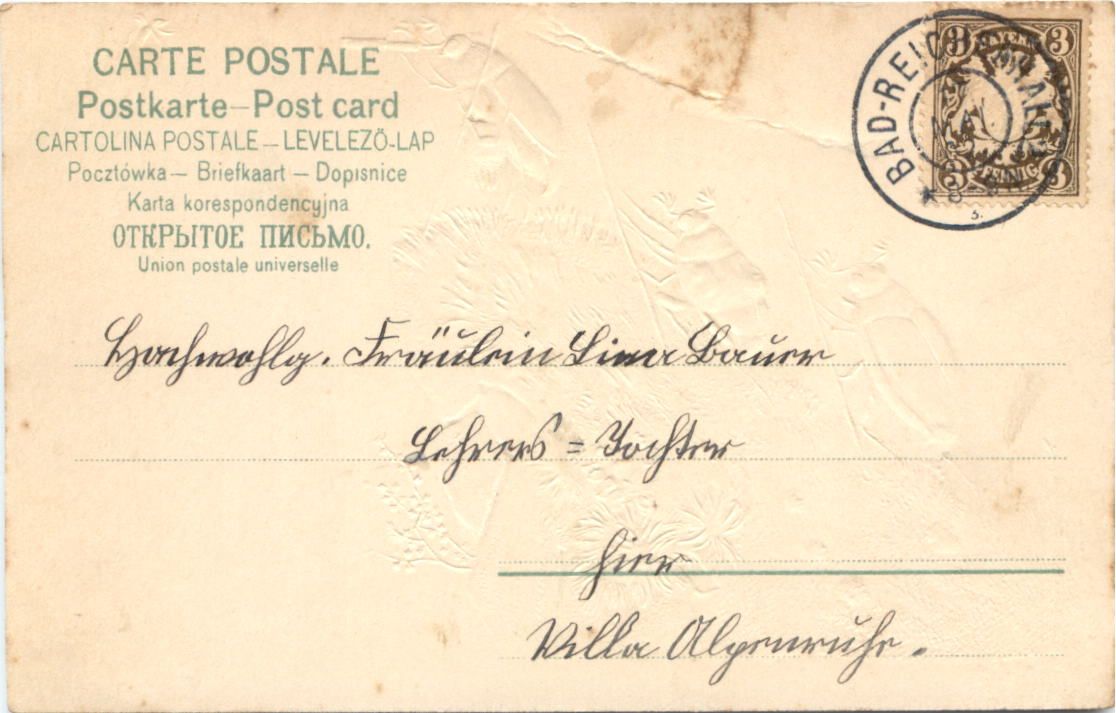 CARTE POSTALE
Postkarte—Post card
CARTOLINA POSTALE—LEVELEZŐ-LAP
Pocztówka—Briefkaart—Dopisnice
Karta korespondencyjna
ОТКРЫТОЕ ПИСЬМО.
Union postale universelle
3 BAYERN 3
BAD-REICHENHALL
MAI
3 PFENNIG 3
3.
Hochwohlg. Fräulein Lina Bauer
Lehrers = Tochter
hier
Villa Alpenruhe.